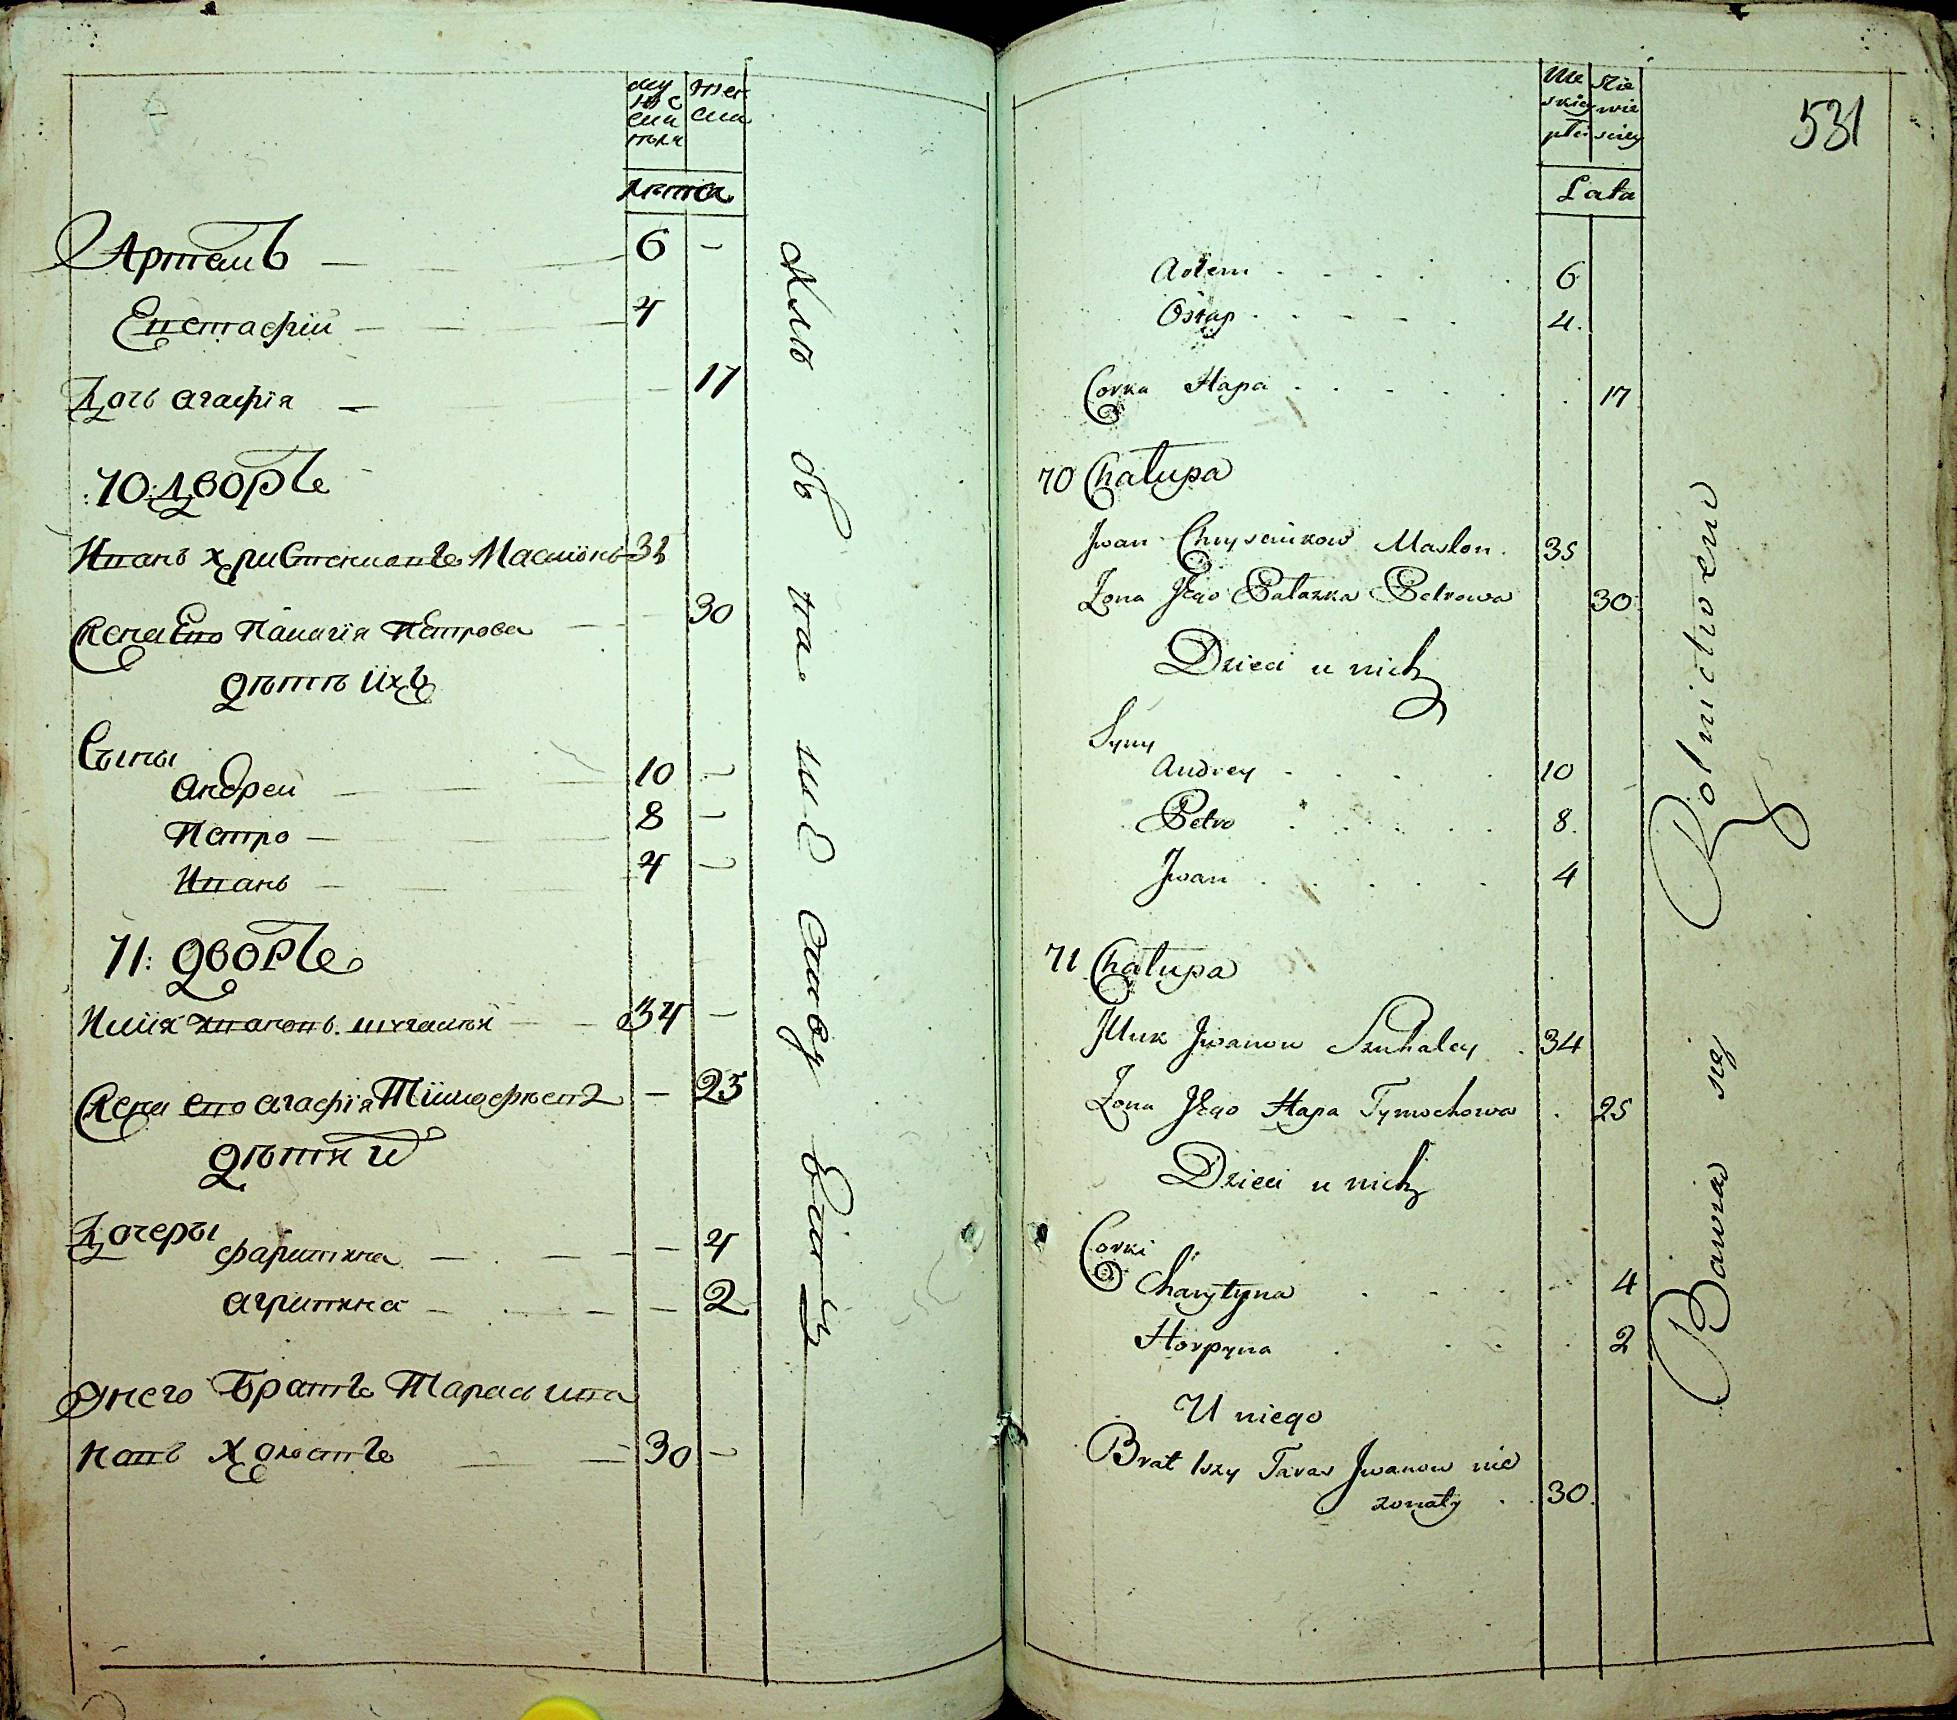 мужеска полꙋ
женска
лѣта
Артемъ 6 —
Евстафій 4
Дочь агафія — 17
:70: дворъ
Иванъ христениовъ Маслюнъ 35
Жена Его Палагія Петрова 30
дѣти ихъ
Сыны
андреи 10 —
Петро 8 —
Иванъ 4 —
71: дворъ
Илия ивановъ шꙋгалѣй 34 —
Жена его агафія Тимофѣева — 25
дѣти и
Дочеры
фаритина — 4
агрипина — 2
Унего братъ Тарасъ ива
новъ холостъ 30 —
531
Mę skiey płci
Nie wie sciey
Lata
Artem 6
Ostap 4.
Corka Hapa 17
70 Chałupa
Jwan Chrysciukow Maslon 35
Żona Jego Pałazka Petrowa 30
Dzieci u nich
Syny
Andrey 10
Petro 8.
Jwan 4
71 Chałupa
Jlluk Jwanow Szuhaley 34
Żona Jego Hapa Tymochowa 25
Dzieci u nich
Corki
Charytyna 4
Horpyna 2
U niego
Brat 1szy Taras Jwanow nie
zonaty 30.
Bawią się Rolnictwem